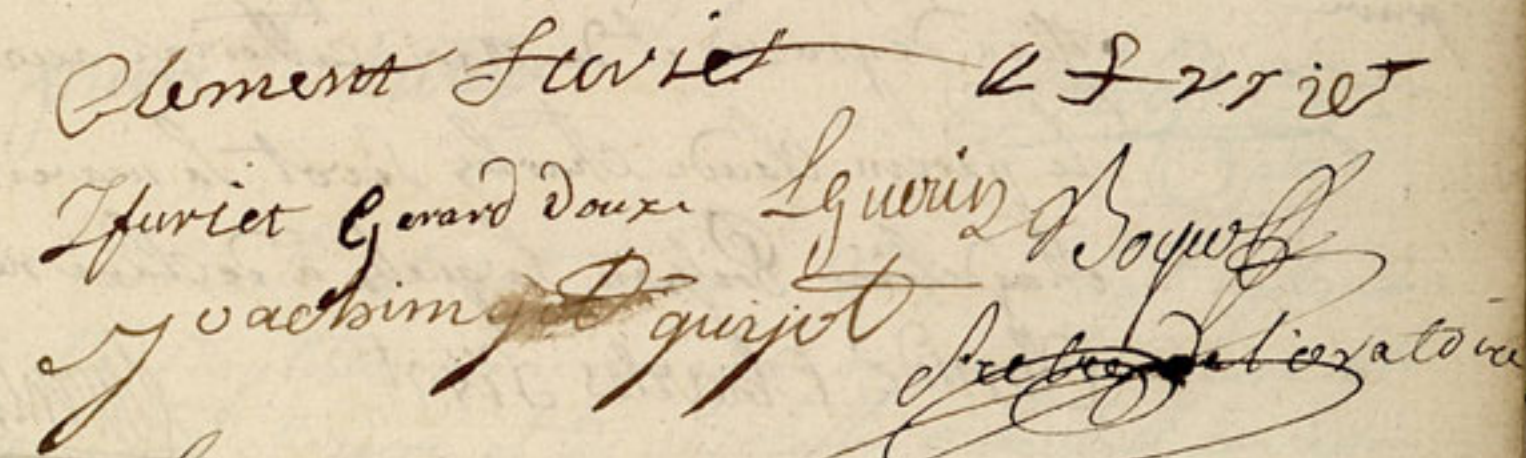 Clement furiet a furiet
J furiet Gerard Doux L Guerin Boquet
Joachim guijot
Pretre de l'oratoire